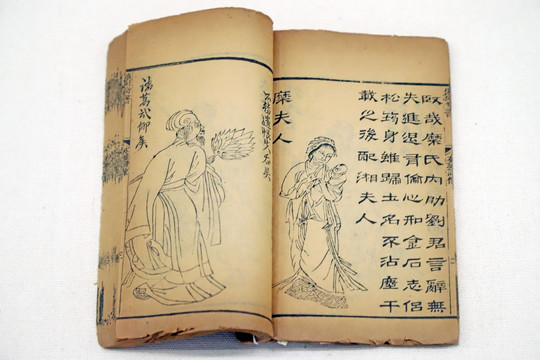 臤哉糜氏內助劉君言辭無
失進退有倫心和金石志侶
松筠身雖歸土名不沾塵千
載之後配湘夫人
糜夫人
諸葛武